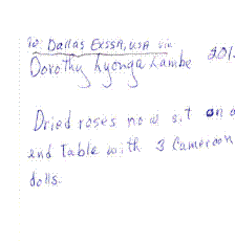 to: Dallas EXSSA, USA via
Dorothy Lyonga Lambe 201
Dried roses now sit on a
end table with 3 Cameroon
dolls.